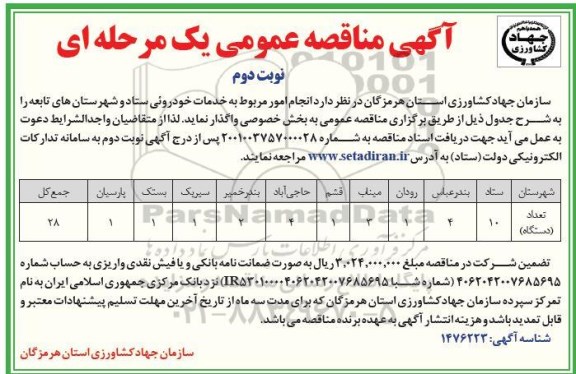 جهاد
کشاورزی
آگهی مناقصه عمومی یک مرحله ای
نوبت دوم
سازمان جهاد کشاورزی استان هرمزگان در نظر دارد انجام امور مربوط به خدمات خودروئی ستاد و شهرستان های تابعه را
به شرح جدول ذیل از طریق برگزاری مناقصه عمومی به بخش خصوصی واگذار نماید. لذا از متقاضیان واجدالشرایط دعوت
به عمل می آید جهت دریافت اسناد مناقصه به شماره ۲۰۰۱۰۰۳۷۵۷۰۰۰۰۲۸ پس از درج آگهی نوبت دوم به سامانه تدارکات
الکترونیکی دولت (ستاد) به آدرس www.setadiran.ir مراجعه نمایند.
شهرستان ستاد بندرعباس رودان میناب قشم حاجی‌آباد بندرخمیر سیریک بستک پارسیان جمع‌کل
تعداد (دستگاه) ۱۰ ۴ ۱ ۳ ۱ ۴ ۲ ۱ ۱ ۱ ۲۸
ParsNamadData
تضمین شرکت در مناقصه مبلغ ۳,۰۲۴,۰۰۰,۰۰۰ ریال به صورت ضمانت نامه بانکی و یا فیش نقدی واریزی به حساب شماره
۴۰۶۲۰۴۲۰۰۷۶۸۵۶۹۵ (شماره شبا IR۵۳۰۱۰۰۰۰۴۰۶۲۰۴۲۰۰۷۶۸۵۶۹۵) نزد بانک مرکزی جمهوری اسلامی ایران به نام
تمرکز سپرده سازمان جهاد کشاورزی استان هرمزگان که برای مدت سه ماه از تاریخ آخرین مهلت تسلیم پیشنهادات معتبر و
قابل تمدید باشد و هزینه انتشار آگهی به عهده برنده مناقصه می باشد.
شناسه آگهی: ۱۴۷۶۲۲۳
سازمان جهاد کشاورزی استان هرمزگان